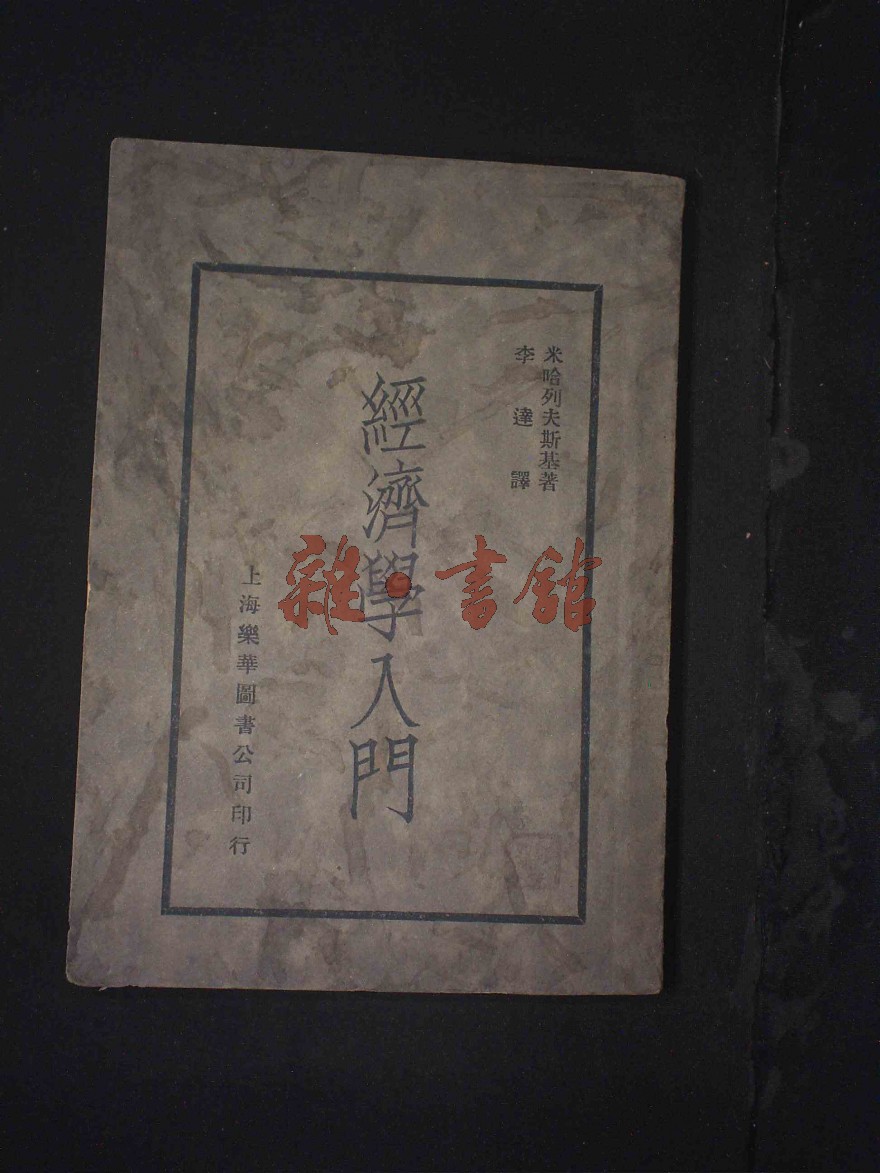 米哈列夫斯基著
李達譯
經濟學入門
上海樂華圖書公司印行
雜·書館